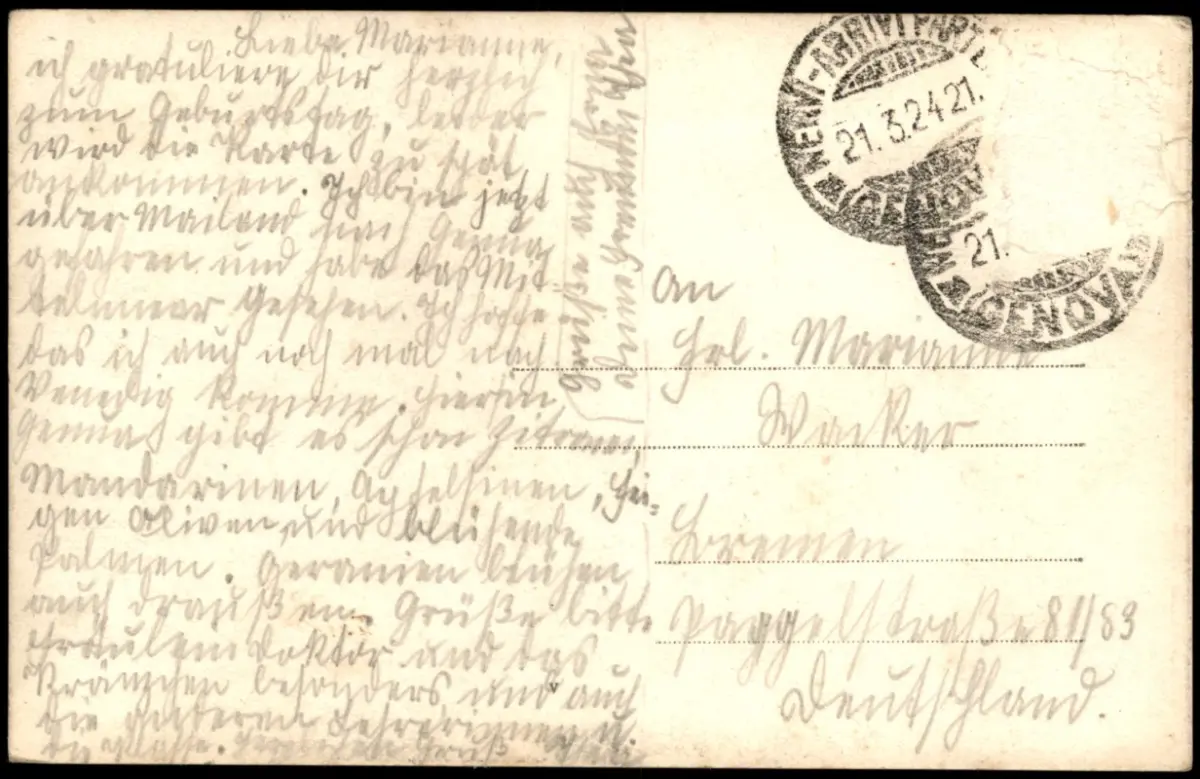 Liebe Marianne,
ich gratuliere dir herzlich
zum Geburtstag, leider
wird die Karte zu spät
ankommen. Ich bin jetzt
über Mailand nach Genua
gefahren und habe das Mit-
telmeer gesehen. Ich hoffe
das ich auch noch mal nach
Venedig komme. Hier in
Genua gibt es schon Zitronen,
Mandarinen, Apfelsinen, Fei-
gen Oliven und blühende
Palmen. Geranien blühen
auch draußen. Grüße bitte
Fräulein Doktor und das
Kränzchen besonders und auch
die anderen Lehrerinnen u.
die Klasse. Herzlichen Gruß
Grüße auch
deine Freundin
NERVI-ARRIVI PART
21.3.24 21.
GENOVA
21.
An
Frl. Marianne
Wacker
Bremen
Paggelstraße 81/83
Deutschland.